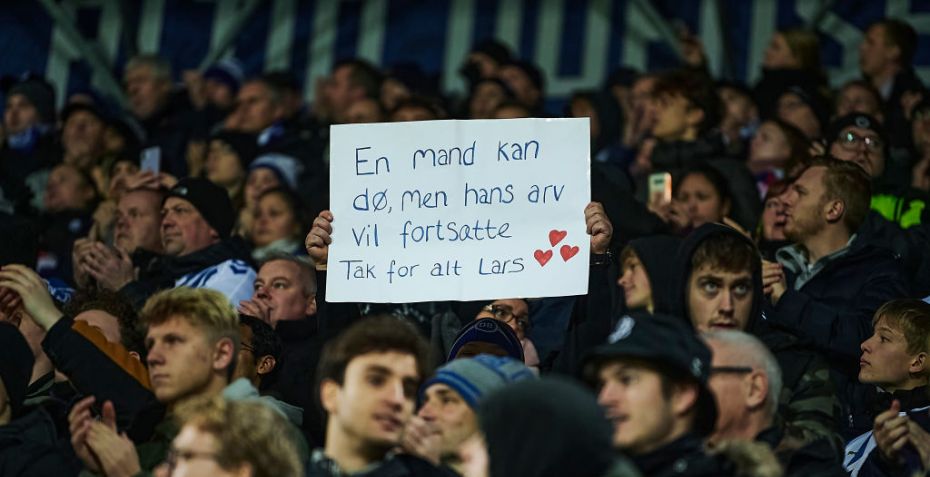 En mand kan
dø, men hans arv
vil fortsatte
Tak for alt Lars